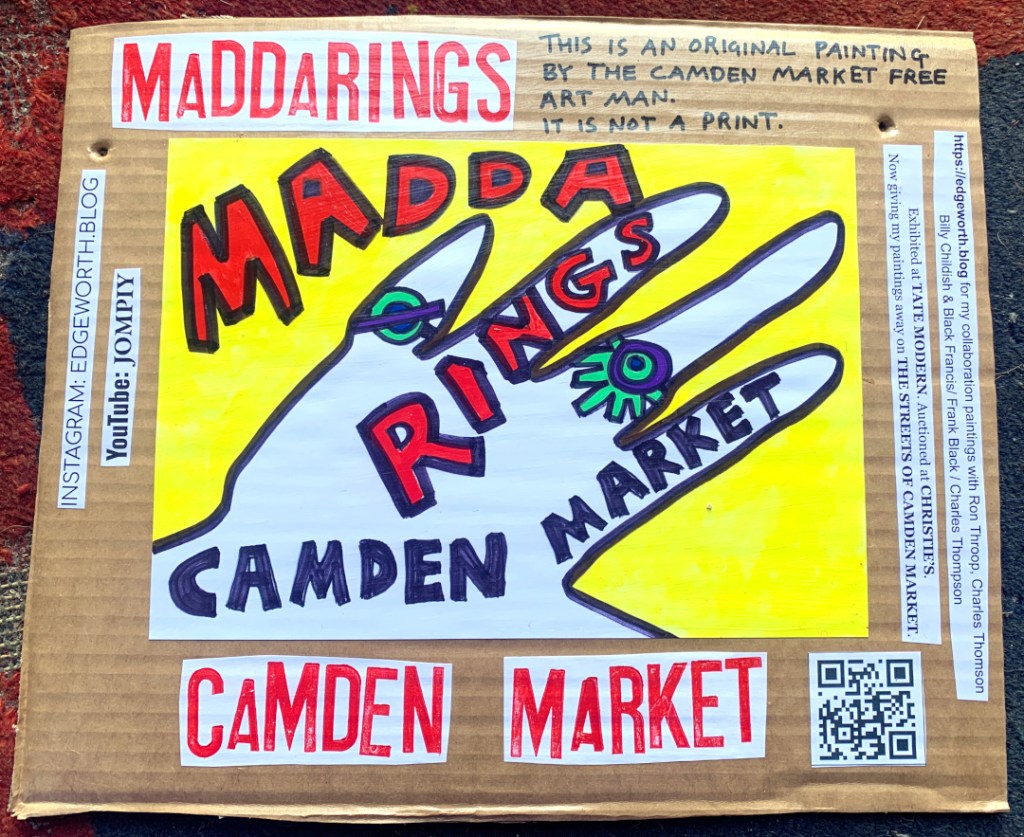 MADDARINGS
THIS IS AN ORIGINAL PAINTING
BY THE CAMDEN MARKET FREE
ART MAN.
IT IS NOT A PRINT.
INSTAGRAM: EDGEWORTH.BLOG
YouTube: JOMPIY
MADDA
RINGS
CAMDEN
MARKET
https://edgeworth.blog for my collaboration paintings with Ron Throop, Charles Thomson
Billy Childish & Black Francis/ Frank Black / Charles Thompson
Exhibited at TATE MODERN. Auctioned at CHRISTIE'S.
Now giving my paintings away on THE STREETS OF CAMDEN MARKET.
CAMDEN MARKET